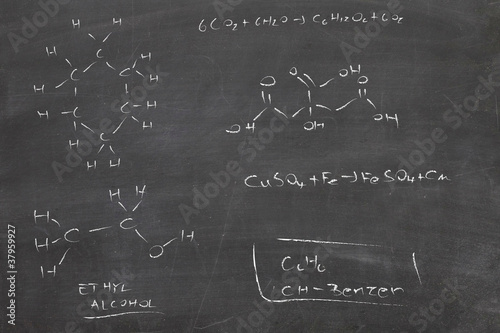 6CO₂ + 6H₂O → C₆H₁₂O₆ + 6O₂
H H
H H
C
H C C H
H C C H
C
H H
H H
O O OH O
HO OH OH
CuSO₄ + Fe → FeSO₄ + Cu
H H
H C
H C H
H O
ETHYL
ALCOHOL
C₆H₆
CH-Benzen
Adobe Stock | #37959927